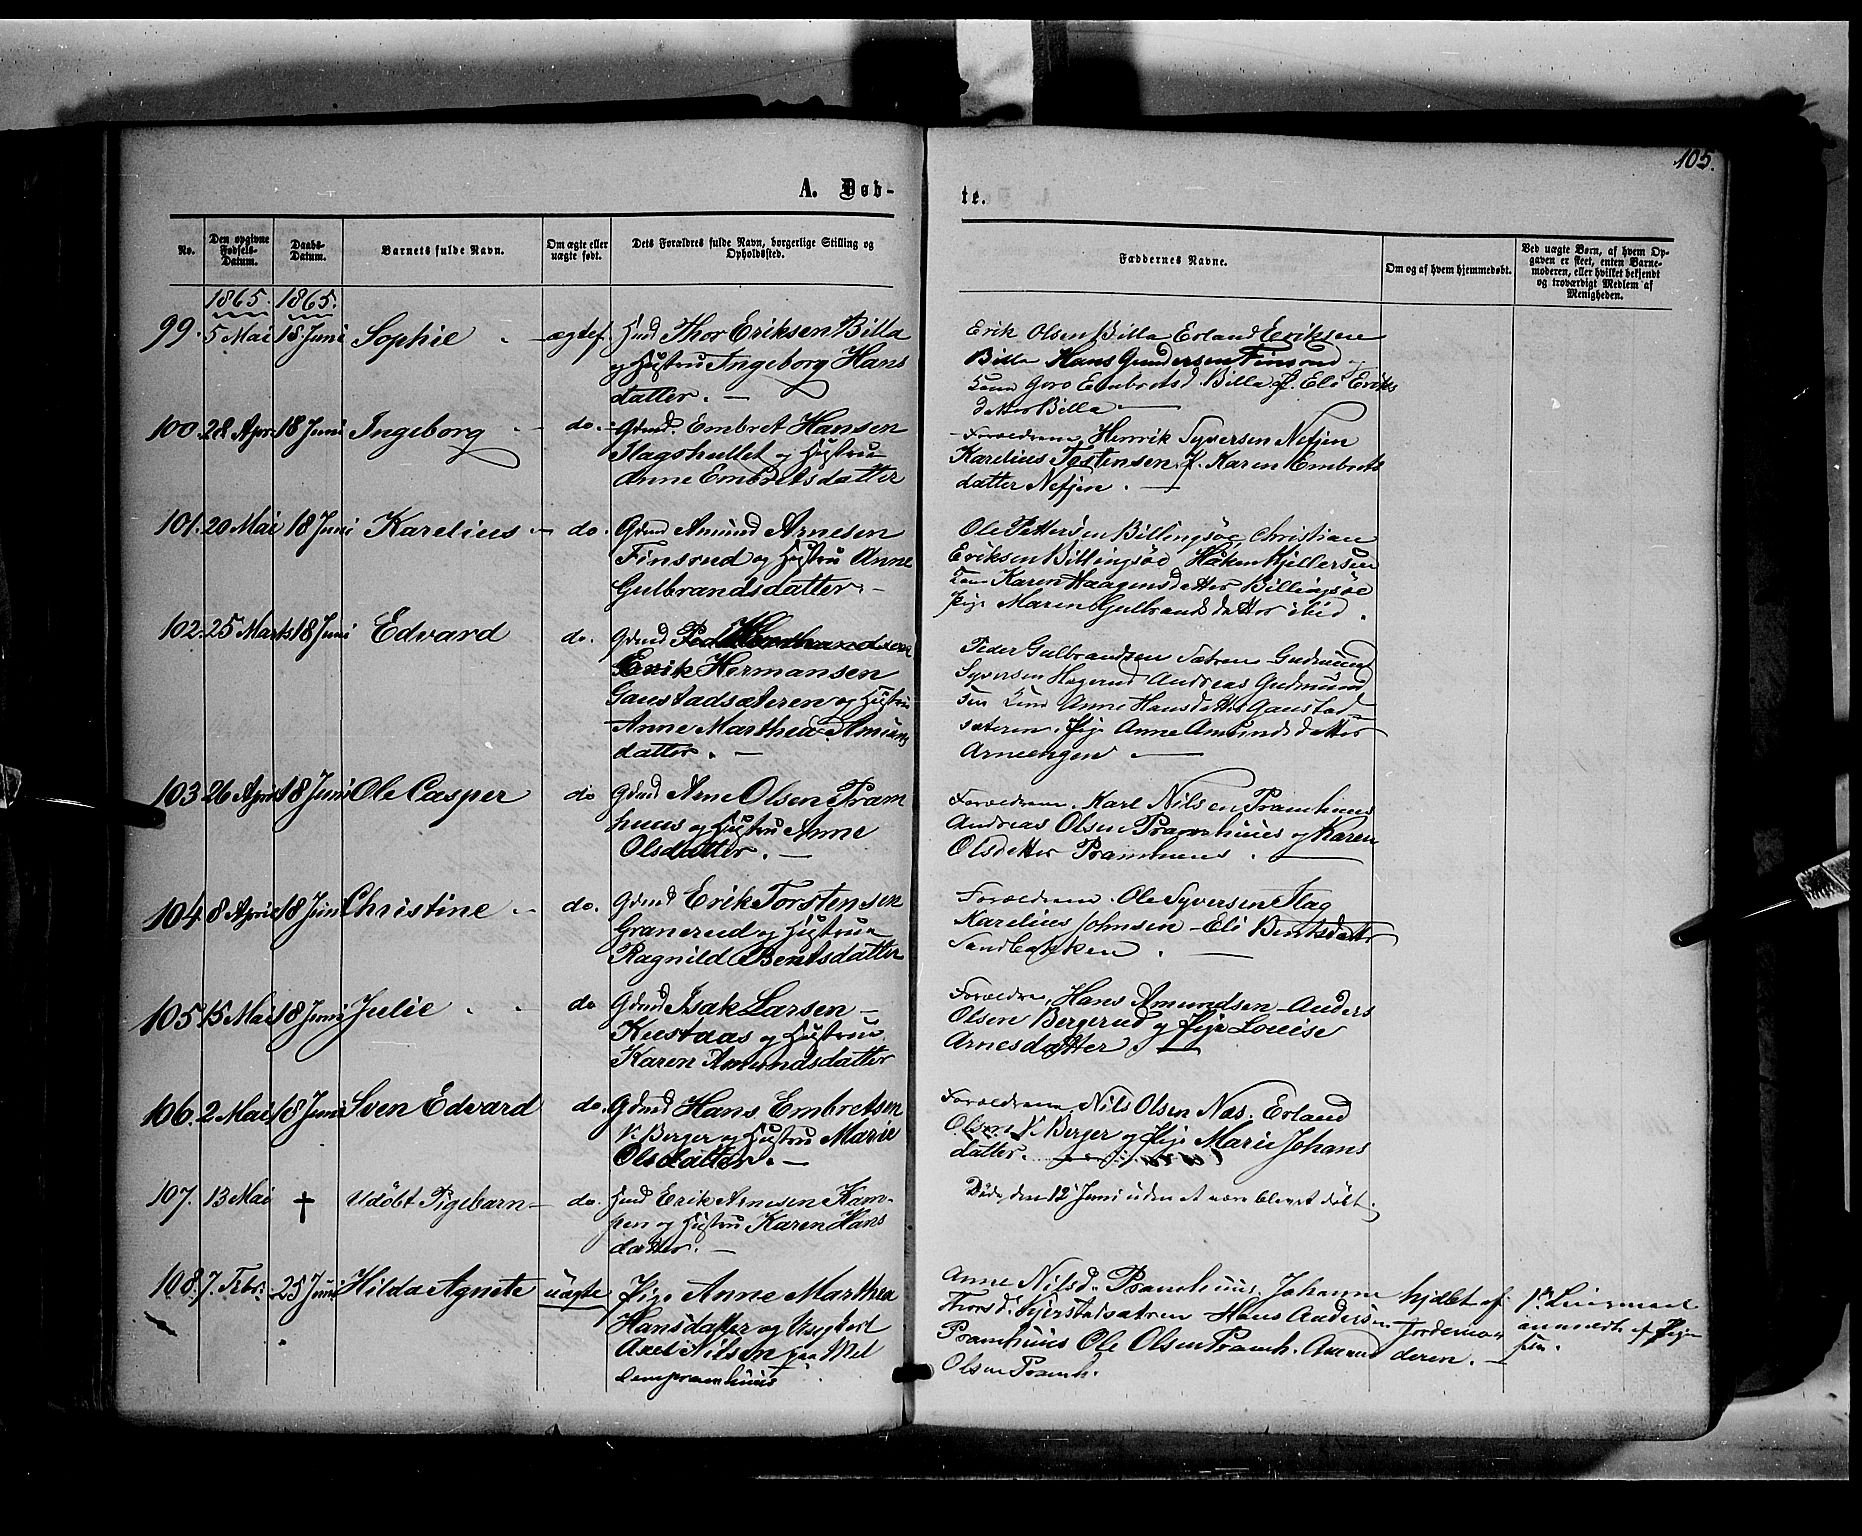 105.
A. Døb-
te.
No.
Den opgivne Fødsels-Datum.
Daabs-Datum.
Barnets fulde Navn.
Om ægte eller uægte født.
Dets Forældres fulde Navn, borgerlige Stilling og Opholdssted.
Faddernes Navne.
Om og af hvem hjemmedøbt.
Ved uægte Børn, af hvem Opgaven er skeet, enten Barnemoderen, eller hvilket bekjendt og troværdigt Medlem af Menigheden.
1865. 1865.
99. 5 Mai 18 Juni Sophie ægtef. Thor Eriksen Billa
og Hustru Ingeborg Hans
datter.
Erik Olsen Billa Erland Eriksen
Billa Hans Gundersen Finsrud
Goro Embretsd. Billa P. Eli Eriks
datter Billa
100. 28 Apr. 18 Juni Ingeborg do. Gdmd. Embret Hansen
Flagshullet og Hustru
Anne Embretsdatter
Forældrene, Henrik Syversen Nefjen
Karelius Tostensen, P. Karen Embrets
datter Nefjen.
101. 20 Mai 18 Juni Karelius do. Gdmd Amund Arnesen
Finsrud og Hustru Anne
Gulbrandsdatter.
Ole Pettersen Billingsøe, Christian
Eriksen Billingsøe Haken Kjellersen
Karen Haagensdatter Billingsøe
Pige Maren Gulbrandsdatter ibid.
102. 25 Marts 18 Juni Edvard do. Gdmd
Erik Hermansen
Gaustadsæteren og Hustru
Anne Marthea Amunds
datter.
Peder Gulbrandsen Sætren Gudmund
Syversen Hagerud Andreas Gudmund
sen Anne Hansdatter Gaustad
sæteren. Pige Anne Amundsdatter
Arneengen
103 26 Apr 18 Juni Ole Casper do Gdmd Arne Olsen Pram
huus og Hustru Anne
Olsdatter.
Forældrene. Karl Nilsen Pramhuus
Andreas Olsen Pramhuus og Karen
Olsdatter Pramhuus.
104 8 April 18 Juni Christine do. Gdmd Erik Torstensen
Granerud og Hustru
Ragnild Bentsdatter
Forældrene. Ole Syversen Flag
Karelius Johnsen Eli Bentsdatter
Sandbakken.
105 15 Mai 18 Juni Julie do Gdmd Isak Larsen
Kustaas og Hustru
Karen Amundsdatter
Forældre, Hans Amundsen Anders
Olsen Bergerud og Pige Louise
Arnesdatter
106. 2 Mai 18 Juni Sven Edvard do. Gdmd Hans Embretsen
V. Berger og Hustru Marie
Olsdatter.
Forældrene, Nils Olsen Næs. Erland
Olsen V. Berger og Pige Marie Johans
datter.
107. 13 Mai † Udøbt Pigebarn do. Erik Arnesen Kam-
pen og Hustru Karen Hans
datter.
Døde den 12 Juni uden at være blevet døbt.
108. 7. Febr. 25 Juni Hilda Agnete uægte Pige Anne Marthea
Hansdatter og Ungkarl
Axel Nilsen paa Mel
lempramhuus
Anne Nilsd. Pramhuus, Johanne
Thorsd. Kjerstadsætren Hans Andersen
Pramhuus Ole Olsen Pramh. Amund
Olsen Pramh.
hjdbt af
Jordemo-
deren.
1ste Leiermaal
anmeldt af Pigen